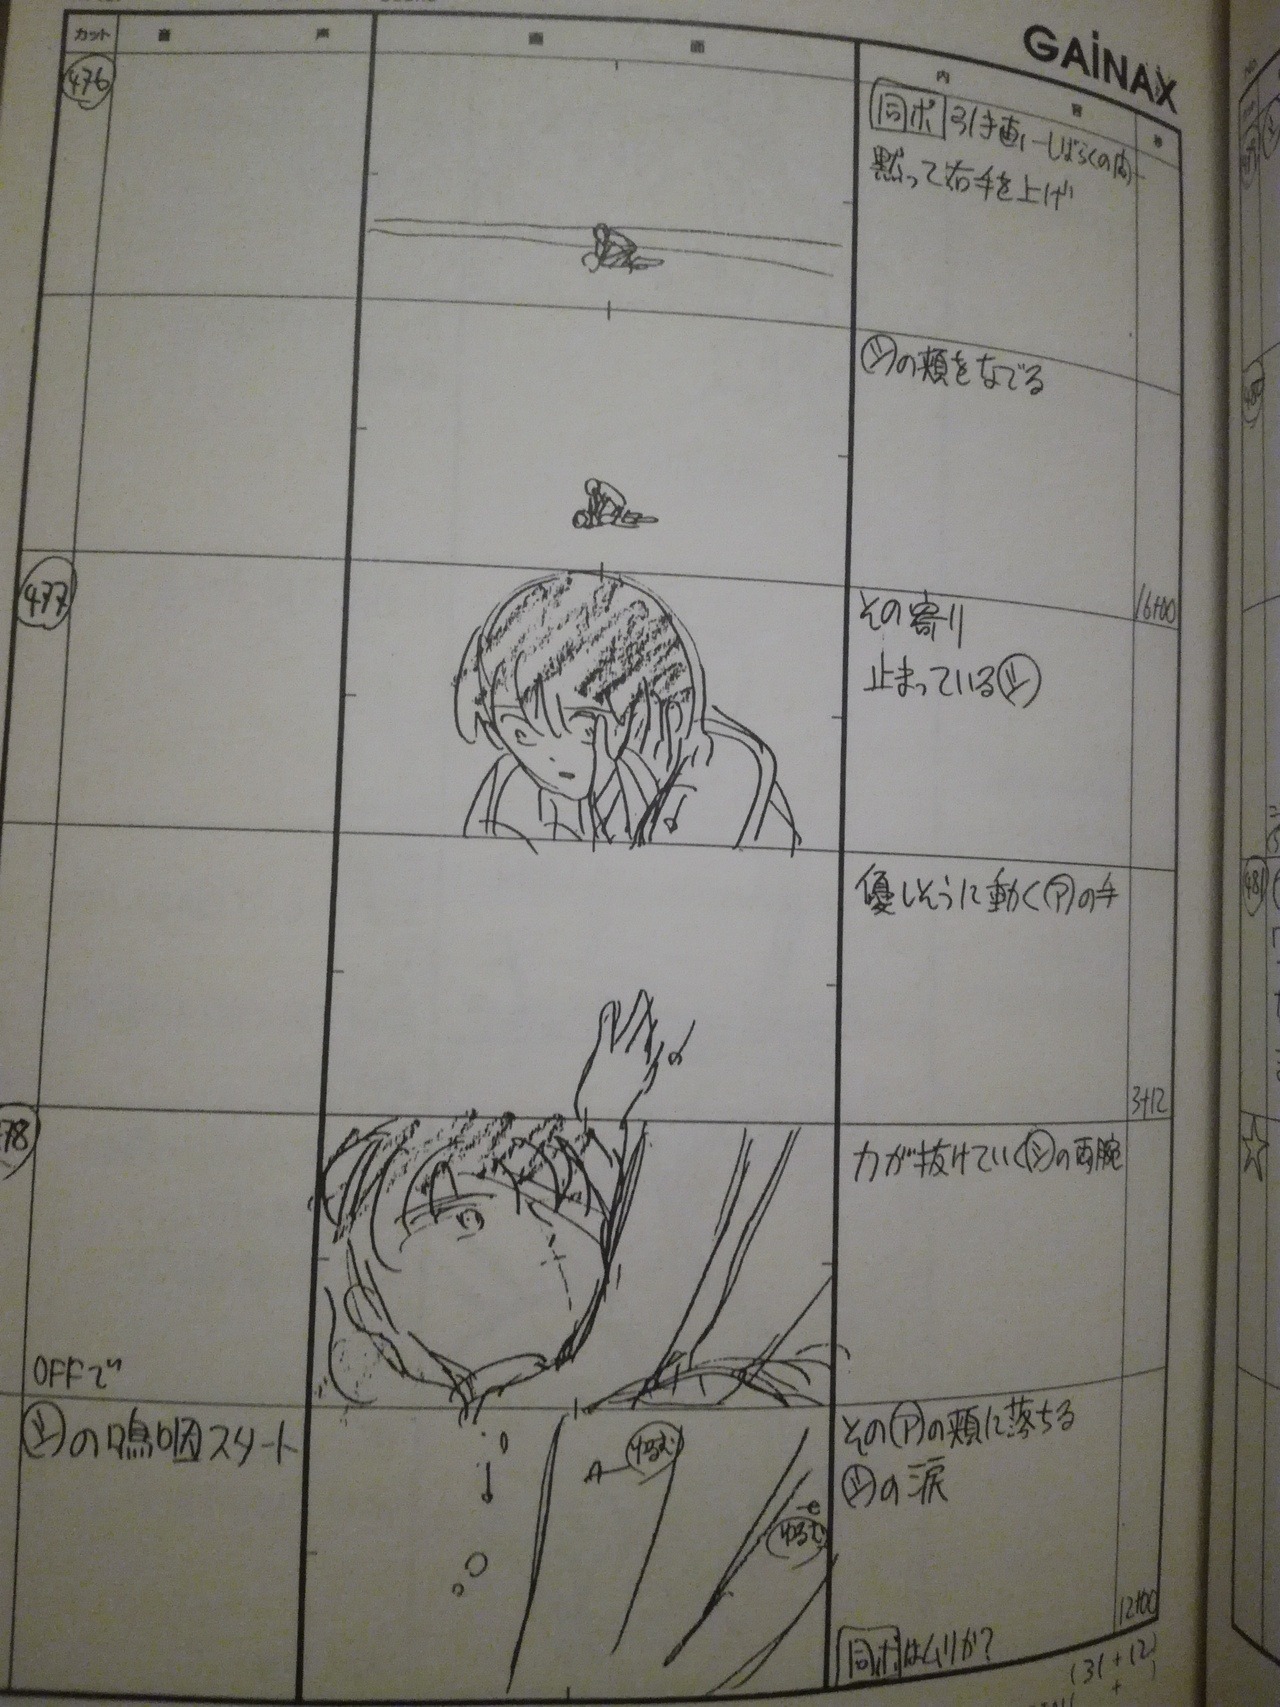 GAiNAX
カット 音 声 画 面 内 容 秒
476
同ポ 引き画、しばらくの間
黙って右手を上げ
シの頬をなでる
16+00
477
その寄り
止まっているシ
優しそうに動くアの手
3+12
478
力が抜けていくシの両腕
OFFで
シの嗚咽スタート
ゆるむ
ゆるむ
そのアの頬に落ちる
シの涙
12+00
同ポはムリか?
(31+12)